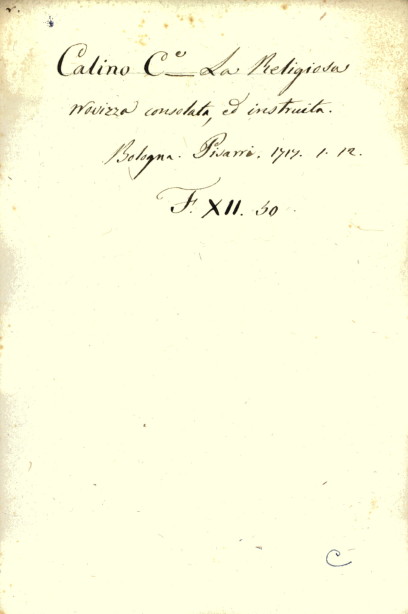 Calino C.e La Religiosa
novizza consolata, ed instruita.
Bologna. Pisarri. 1717. 1. 12.
F. XII. 50
C